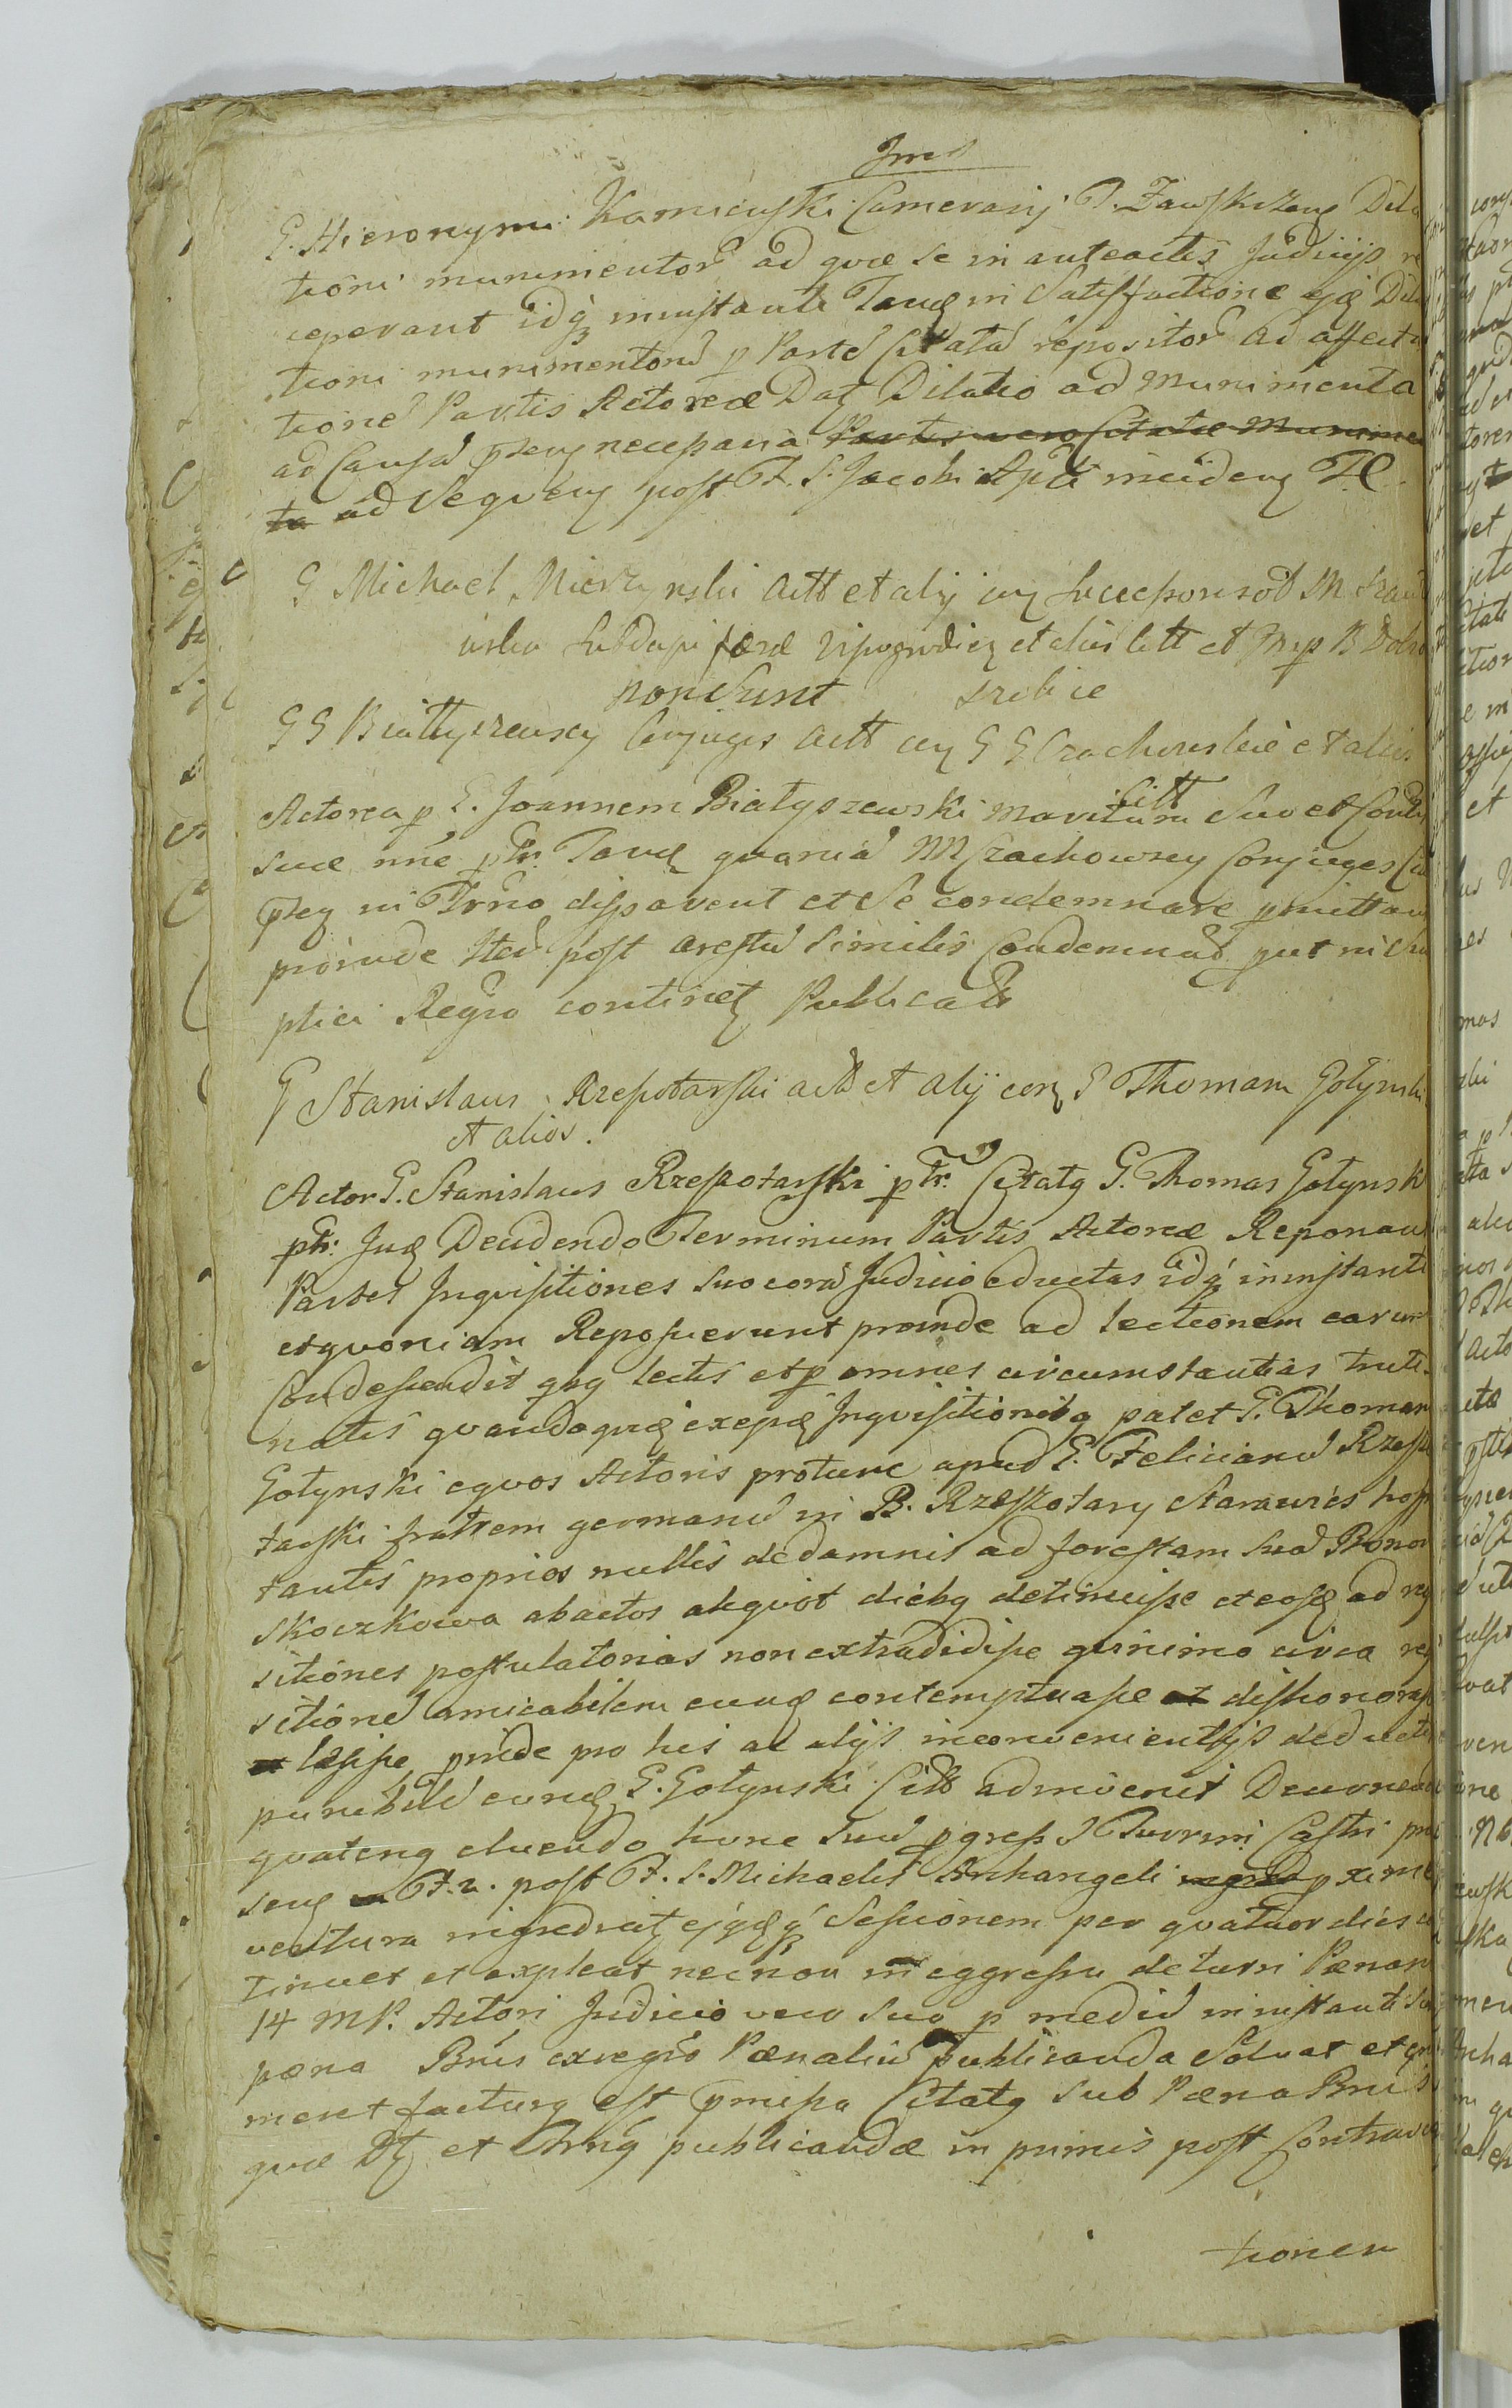 G. Hieronymi Karnicuski Camerarij T. Zawskrzens Dila
tioni munimentor ad quæ se in anteactis Judicijs re
ceperant idq instante Tanq in Satisfactione ejq Dila
tioni munimentoru p Parte Citata repositor ad affecta
tione Partis Actoreæ Dat Dilatio ad munimenta
ad Causa pntem necessaria Partis vero Citatæ Munimen
ta ad Sequen post F. S. Jacobi Apli inciden TC
G Michael Mierzynski Actt et alij cum Successorisod M
Subdapiferæ et alios Citt et
non sunt
G G Białłyszewscy Conjuges Actt cum G G Czachowskie et alios
Citt
Actorea p G. Joannem Białyszewski Maritum Suo et Conthlis
suæ nne ptr. Tanq quania M Czachowscy Conjuges Citt
pteq in Trno disparent et Se condemnare pmittant
proinde Ited post arestu similis Condemnad put in Sim
plici Regro continet Publicatr
G Stanislaus Rzeszotarski actt et alij con G Thomam Gołynski
et alios.
Actor G. Stanislaus Rzeszotarski ptr. Citatq G. Thomas Gołynski
ptr. Juq Decidendo Terminum Partis Actoreæ Reponant
Partes Inquisitiones suo cora Judicio eductas idq in instanti
et quoniam Reposuerunt proinde ad lectionem earum
Condescendit qbq lectis et p omnes circumstantias truti-
natis quandoquiq exepq Inquisitionibq patet G. Thomam
Gołynski equos Actoris protunc apud G. Felicianu Rzeszo
tarski fratrem germanu in B. Rzeszotary Starawies hospi
tantis proprios nullis de damnis ad forestam sua Bonor
Skoczkowa abactos aliquot diebq detinuisse et eosq ad requi
sitiones postulatorias non extradidisse quinimo circa requi
sitione amicabilem eunq contempsisse et dishonorasse
et læsisse pinde pro his ac alijs inconvenientijs deductis
punibile eunq G. Gołynski Citt advenit Decernendo
quatenq eluendo hunc suu pgress Turrim Castri præ
senq F. 2. post F. S. Michaelis Archangeli pxime
ventura ingrediat ejqq Sessionem per quatuor dies con
tinuet et expleat necnon in eggressu de turri Pœnam
14 MP. Actori Judicio vero suo p mediu in instanti sub
pæna Bnis ex regro Pœnaliu publicanda Solvat et
ment facturq est pmissa Citatq sub Pæna Bnis
quæ Dt et publicandæ in primis post Contraven
tionem